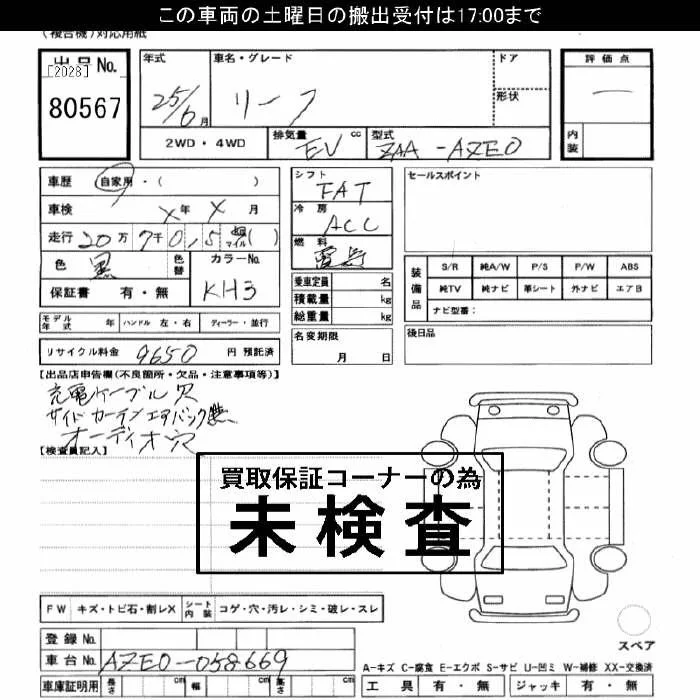 この車両の土曜日の搬出受付は17:00まで
(複合機)対応用紙
出品No. [2028] 80567
年式 25/6月
車名・グレード リーフ
ドア
形状
評価点 ー
内装
2WD・4WD 排気量 EV cc 型式 ZAA-AZE0
車歴 自家用・( )
車検 X年 X月
走行 20万 7千 0,5 マイル( )
色 黒 色替 カラーNo. KH3
保証書 有・無
シフト FAT
冷房 ACC
燃料 電気
乗車定員 名
積載量 kg
総重量 kg
セールスポイント
装備品 S/R 純A/W P/S P/W ABS
純TV 純ナビ 革シート 外ナビ エアB
ナビ型番:
モデル年式 年 ハンドル 左・右 ディーラー・並行
名変期限 月 日
後日品
リサイクル料金 9650 円 預託済
【出品店申告欄(不良箇所・欠品・注意事項等)】
充電ケーブル欠
サイドカーテンエアバック無
オーディオ穴
【検査員記入】
買取保証コーナーの為
未検査
FW キズ・トビ石・割レX シート内装 コゲ・穴・汚レ・シミ・破レ・スレ
スペア
登録No.
車台No. AZE0-058669
A-キズ C-腐食 E-エクボ S-サビ U-凹ミ W-補修 XX-交換済
車庫証明用 長さ cm 幅 cm 高さ cm
工具 有・無 ジャッキ 有・無